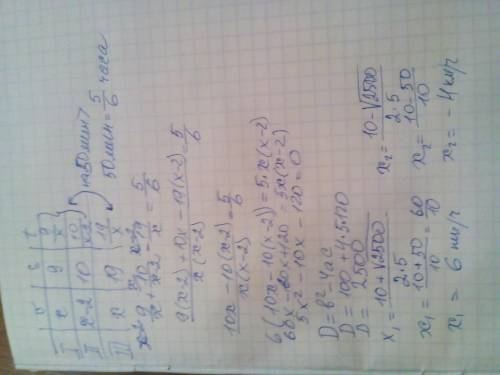 v S t
I x 9 9/x
II x-2 10 10/x-2
III x 19 19/x
на 50 мин >
50 мин = 5/6 часа
9/x + 10/x-2 - 19/x = 5/6
9(x-2)+10x-19(x-2)/x(x-2) = 5/6
10x-10(x-2)/x(x-2) = 5/6
6(10x-10(x-2)) = 5·x(x-2)
60x-60x+120 = 5x(x-2)
5x²-10x-120=0
D = b²-4ac
D = 100+4·5·120
D = 2500
x₁ = 10+√2500/2·5 x₂ = 10-√2500/2·5
x₁ = 10+50/10 = 60/10 x₂ = 10-50/10
x₁ = 6 км/ч x₂ = -4 км/ч